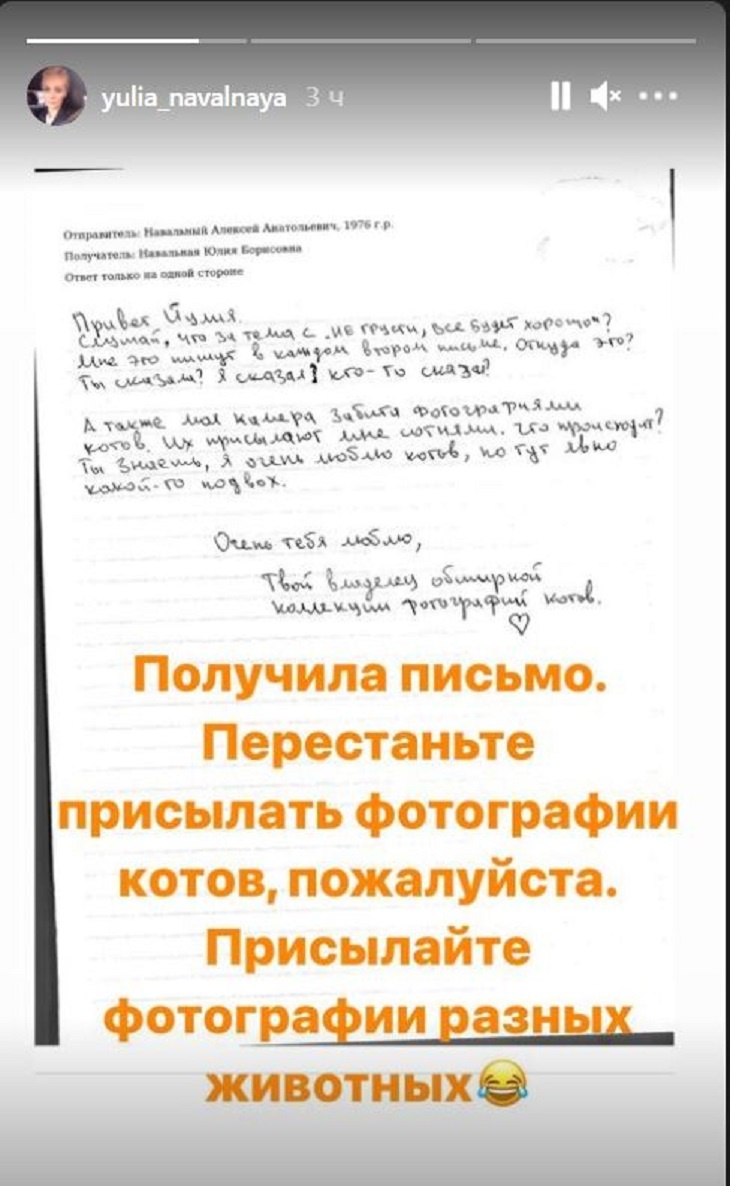 yulia_navalnaya 3 ч
Отправитель: Навальный Алексей Анатольевич, 1976 г.р.
Получатель: Навальная Юлия Борисовна
Ответ только на одной стороне
Привет Йулия.
Слушай, что за тема с „не грусти, все будет хорошо"?
Мне это пишут в каждом втором письме. Откуда это?
Ты сказала? Я сказал? кто-то сказал?
А также моя камера забита фотографиями
котов. Их присылают мне сотнями. Что происходит?
Ты знаешь, я очень люблю котов, но тут явно
какой-то подвох.
Очень тебя люблю,
Твой владелец обширной
коллекции фотографий котов.
Получила письмо.
Перестаньте
присылать фотографии
котов, пожалуйста.
Присылайте
фотографии разных
животных😂